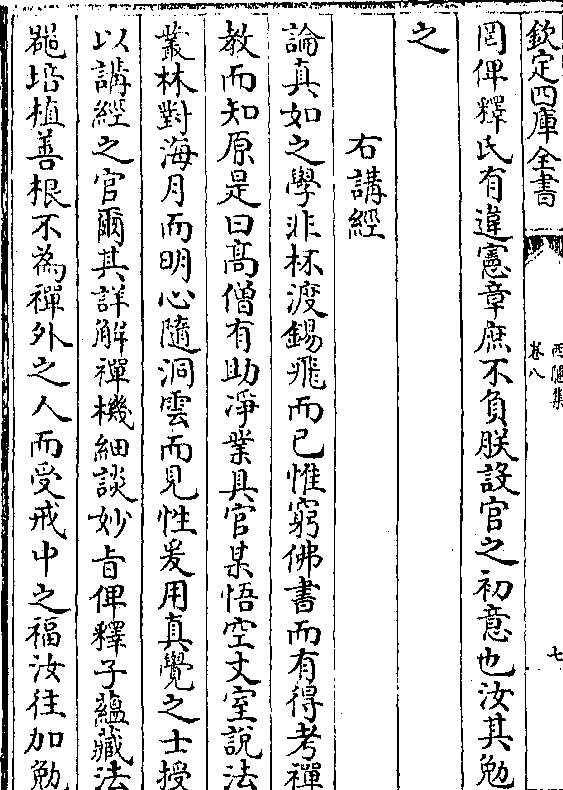 欽定四庫全書
西隱集
卷八
七
罔俾釋氏有違憲章庶不負朕設官之初意也汝其勉
之
右講經
論真如之學非杯渡錫飛而已惟窮佛書而有得考禪
教而知原是曰髙僧有助淨業具官某悟空丈室說法
叢林對海月而明心隨洞雲而見性爰用真覺之士授
以講經之官爾其詳解禪機細談妙旨俾釋子藴藏法
器培植善根不為禪外之人而受戒中之福汝往加勉